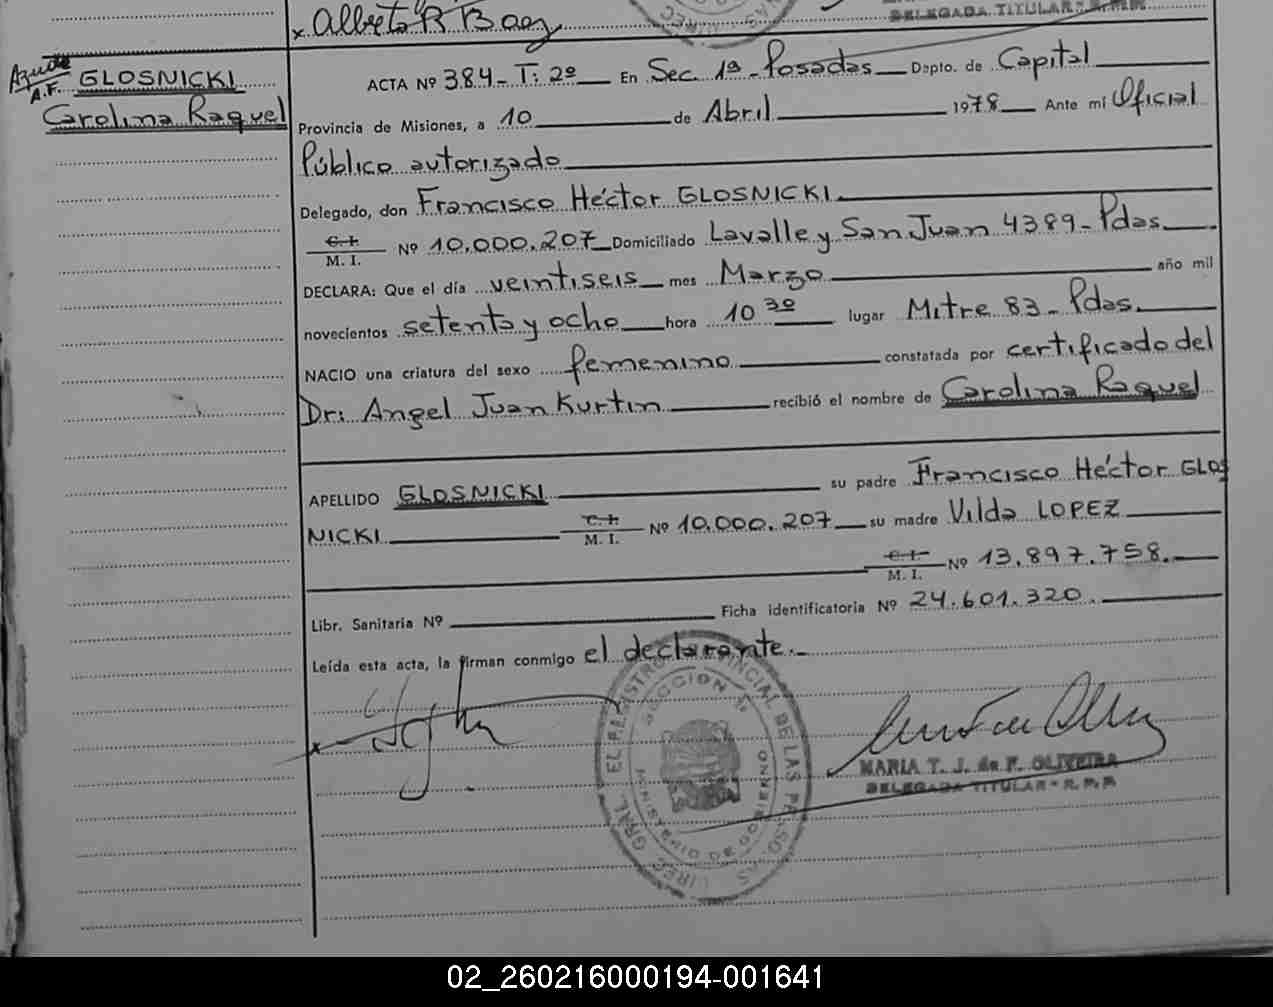 x Alberto R Baez
DELEGADA TITULAR - R.P.P.
Ayude
A.F. GLOSNICKI
Carolina Raquel
ACTA Nº 384 - T: 2º En Sec. 1ª Posadas Dpto. de Capital
Provincia de Misiones, a 10 de Abril 1978 Ante mí Oficial
Público autorizado
Delegado, don Francisco Héctor GLOSNICKI
C. I.
M. I. Nº 10.000.207 Domiciliado Lavalle y San Juan 4389 - Pdas.
DECLARA: Que el día veintiseis mes Marzo año mil
novecientos setenta y ocho hora 10 30 lugar Mitre 83 - Pdas.
NACIO una criatura del sexo femenino constatada por certificado del
Dr: Angel Juan Kurtin recibió el nombre de Carolina Raquel
APELLIDO GLOSNICKI su padre Francisco Héctor GLOS
NICKI C. I. M. I. Nº 10.000.207 su madre Vilda LOPEZ
C. I. M. I. Nº 13.897.758.
Libr. Sanitaria Nº Ficha identificatoria Nº 24.601.320.
Leída esta acta, la firman conmigo el declarante.
MARIA T. J. de F. OLIVEIRA
DELEGADA TITULAR - R.P.P.
SECCION
MINISTERIO DE GOBIERNO
02_260216000194-001641